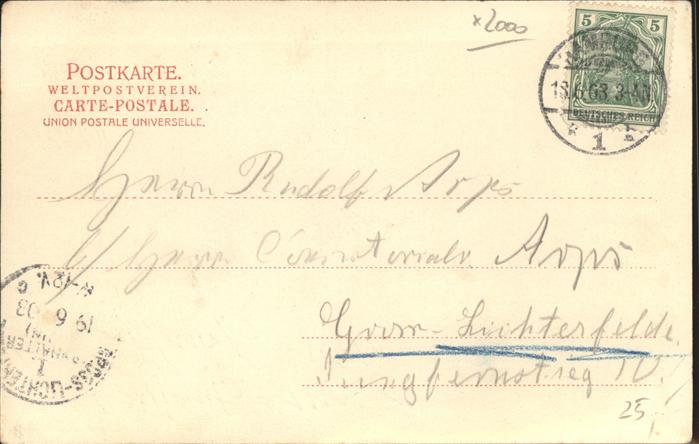 x2000
5 5
DEUTSCHES REICH
18.6.03 3-4N
1
POSTKARTE.
WELTPOSTVEREIN.
CARTE-POSTALE.
UNION POSTALE UNIVERSELLE.
Herrn Rudolf Arps
b/ Herrn Arps
Gross-Lichterfelde.
Jungfernstieg 10.
GROSS-LICHTER
19 6 03
11-12V.
25